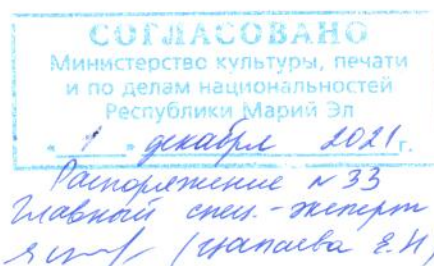 СОГЛАСОВАНО
Министерство культуры, печати
и по делам национальностей
Республики Марий Эл
« 1 » декабря 2021 г.
Распоряжение № 33
Главный спец.-эксперт
(Чапаева Е.Н)